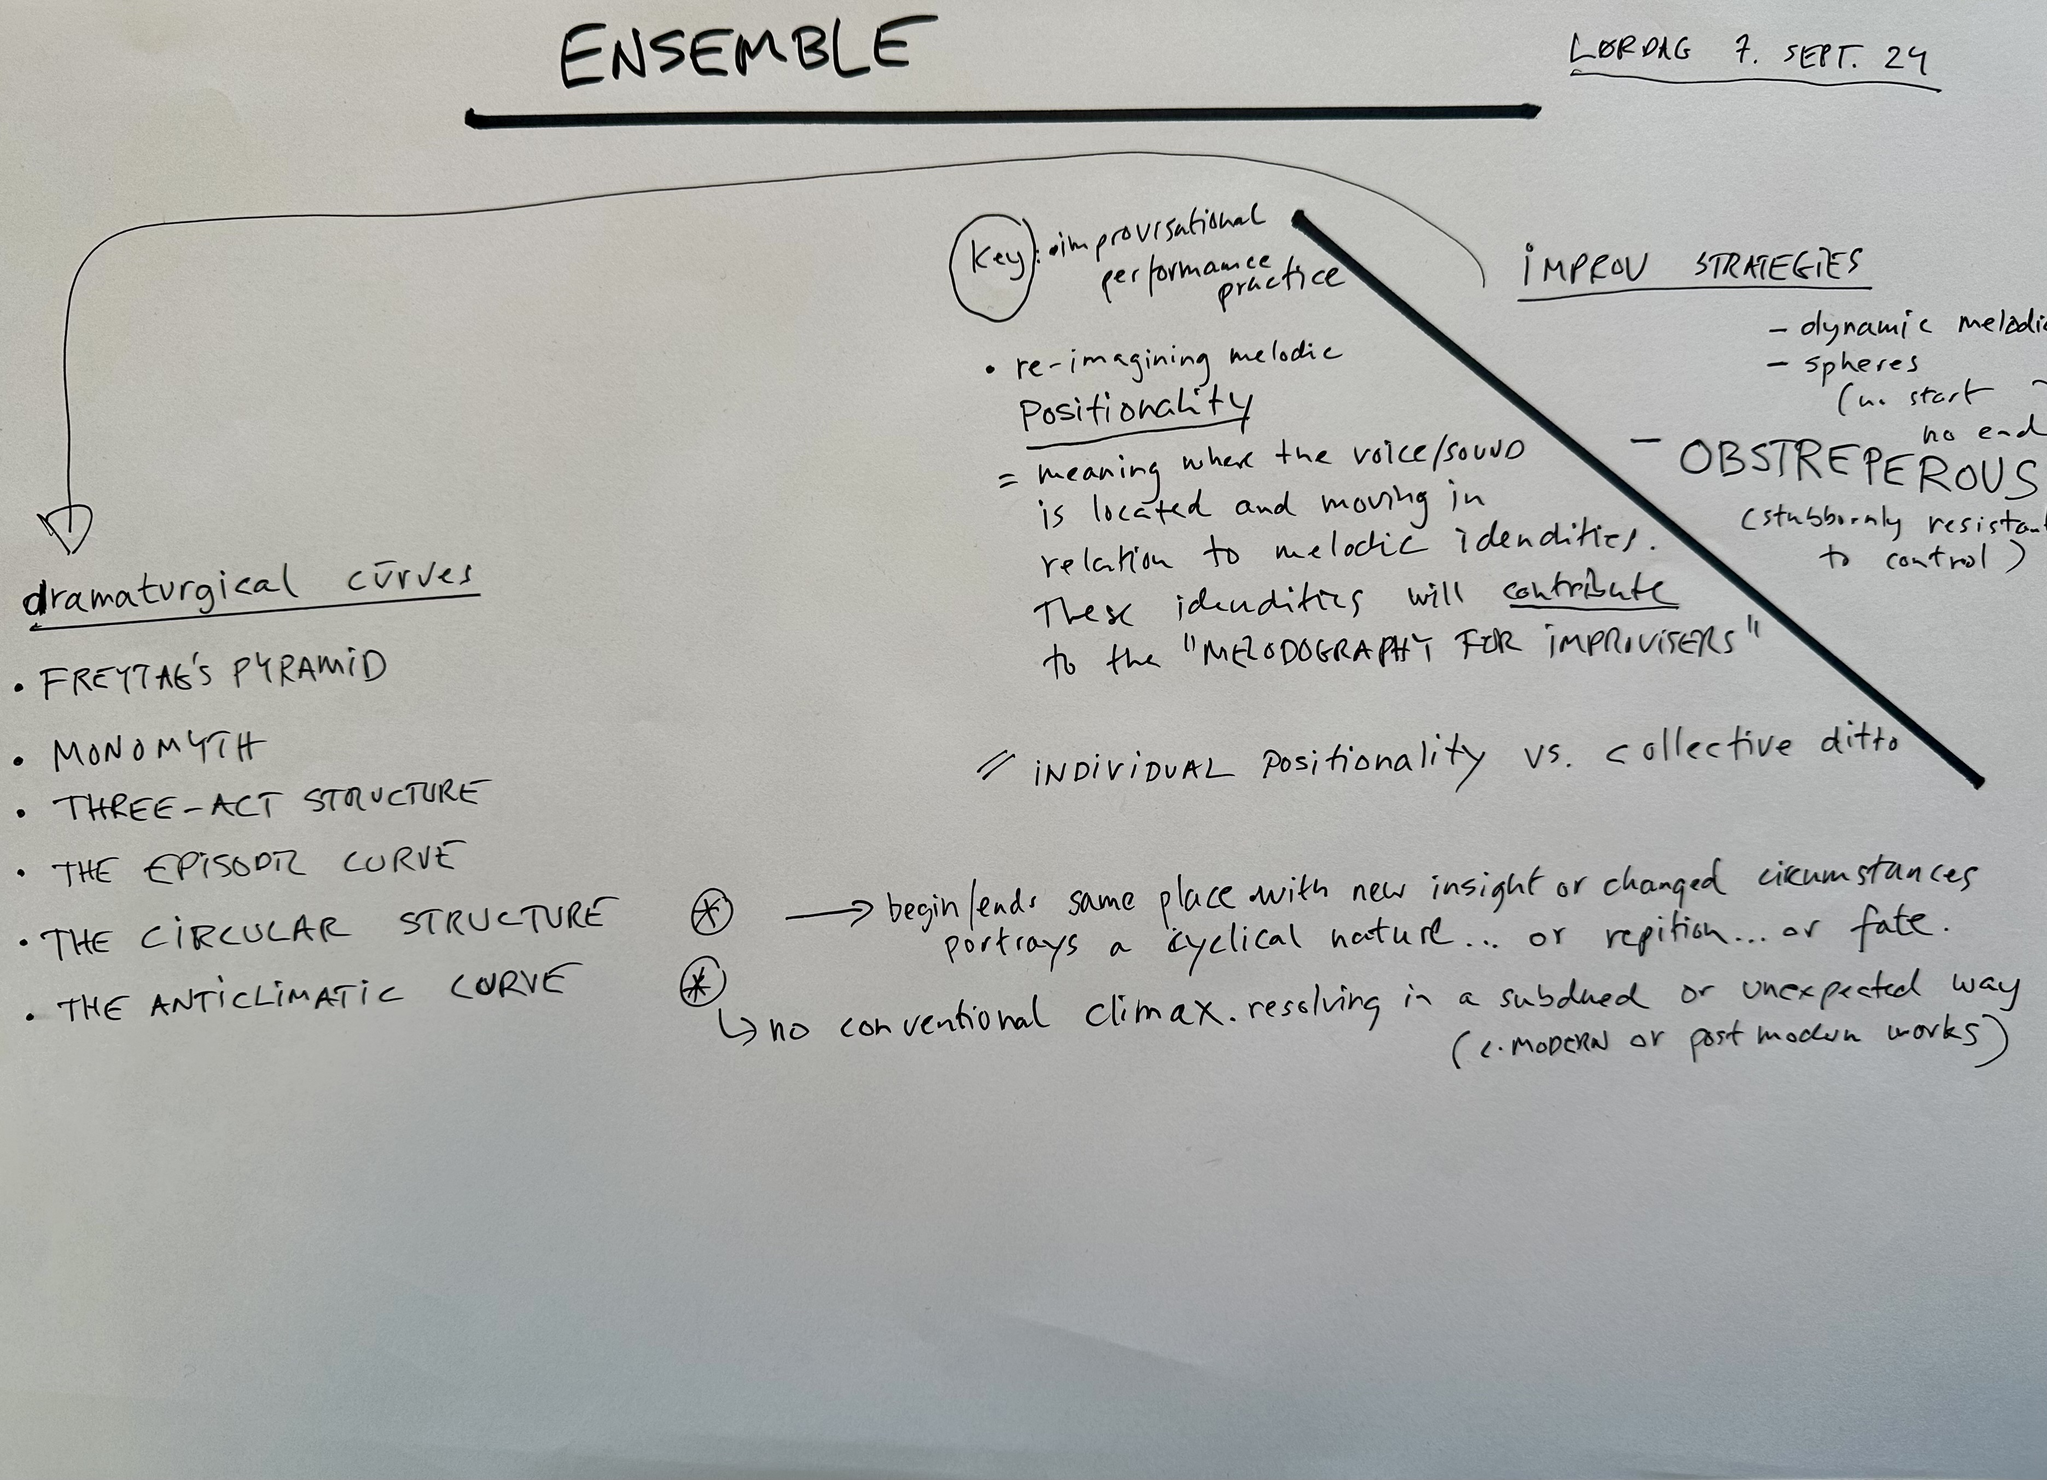 ENSEMBLE
LØRDAG 7. SEPT. 24
Key: • improvisational
performance
practice
• re-imagining melodic
Positionality
= meaning where the voice/sound
is located and moving in
relation to melodic idendities.
These idendities will contribute
to the "MELODOGRAPHY FOR IMPROVISERS"
// INDIVIDUAL Positionality vs. collective ditto
IMPROV STRATEGIES
- dynamic melodic
- spheres
(no start
no end
- OBSTREPEROUS
(stubbornly resistant
to control)
dramaturgical curves
• FREYTAG'S PYRAMID
• MONOMYTH
• THREE-ACT STRUCTURE
• THE EPISODIC CURVE
• THE CIRCULAR STRUCTURE * → begin/ends same place with new insight or changed circumstances
portrays a cyclical nature... or repition... or fate.
• THE ANTICLIMATIC CURVE *
↳ no conventional climax. resolving in a subdued or unexpected way
(MODERN or post modern works)